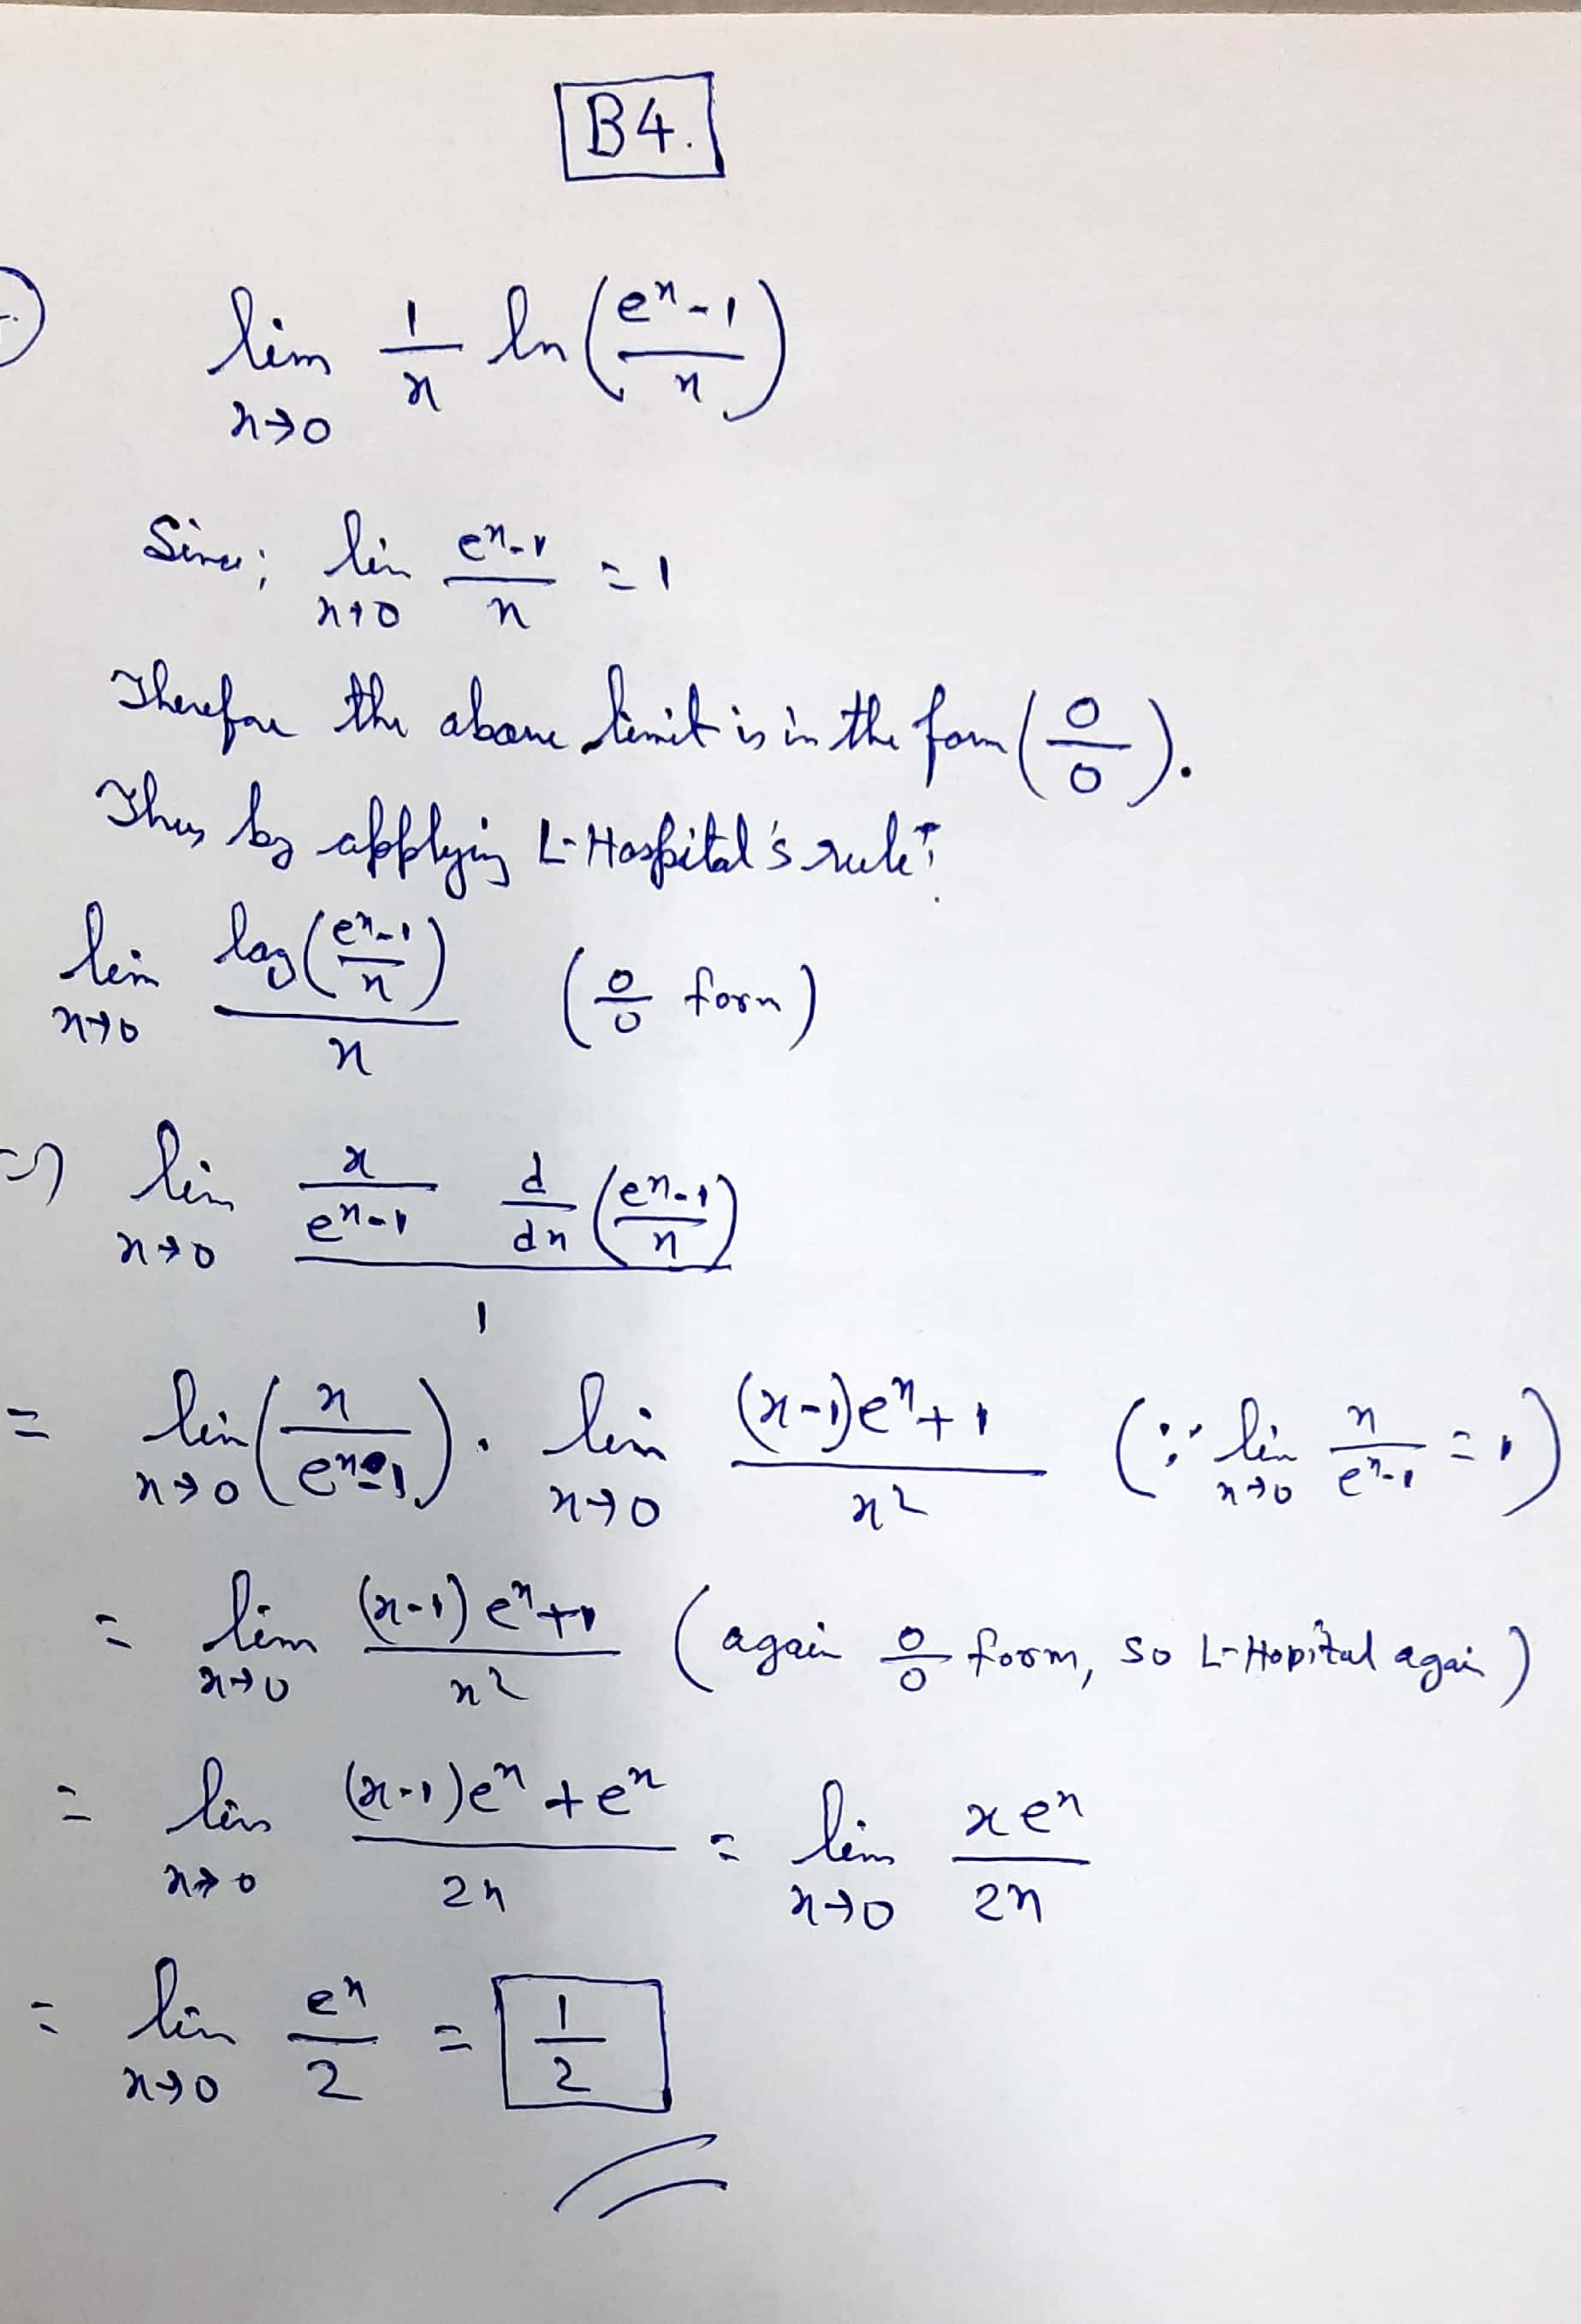 B4.
lim x→0 1/x ln((e^x-1)/x)
Since; lim x→0 (e^x-1)/x = 1
Therefore the above limit is in the form (0/0).
Thus by applying L-Hospital's rule;
lim x→0 log((e^x-1)/x)/x (0/0 form)
=> lim x→0 (x/(e^x-1) d/dx((e^x-1)/x))/1
= lim x→0 (x/(e^x-1)) · lim x→0 ((x-1)e^x+1)/x² (∵ lim x→0 x/(e^x-1) = 1)
= lim x→0 ((x-1)e^x+1)/x² (again 0/0 form, so L-Hopital again)
= lim x→0 ((x-1)e^x+e^x)/2x = lim x→0 xe^x/2x
= lim x→0 e^x/2 = 1/2